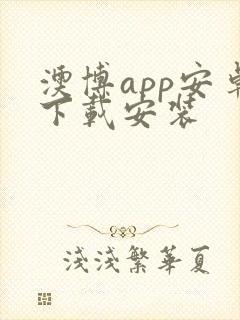 澳博app安卓
下载安装
浅浅繁華夏